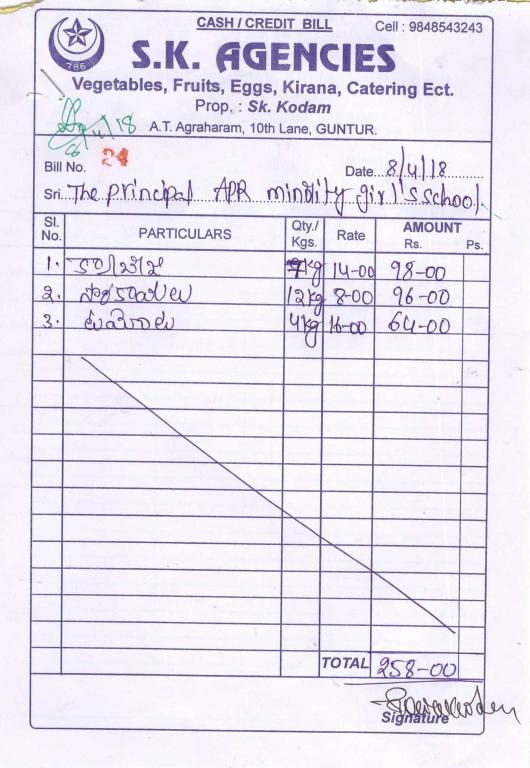 CASH / CREDIT BILL
Cell : 9848543243
786
S.K. AGENCIES
Vegetables, Fruits, Eggs, Kirana, Catering Ect.
Prop. : Sk. Kodam
A.T. Agraharam, 10th Lane, GUNTUR.
8/4/18
Bill No. 24
Date 8/4/18
Sri. The principal APR minority girl's school
Sl. No. PARTICULARS Qty./ Kgs. Rate AMOUNT Rs. Ps.
1. 7kg 14-00 98-00
2. సొరకాయలు 12kg 8-00 96-00
3. టమోటాలు 4kg 16-00 64-00
TOTAL 258-00
Signature